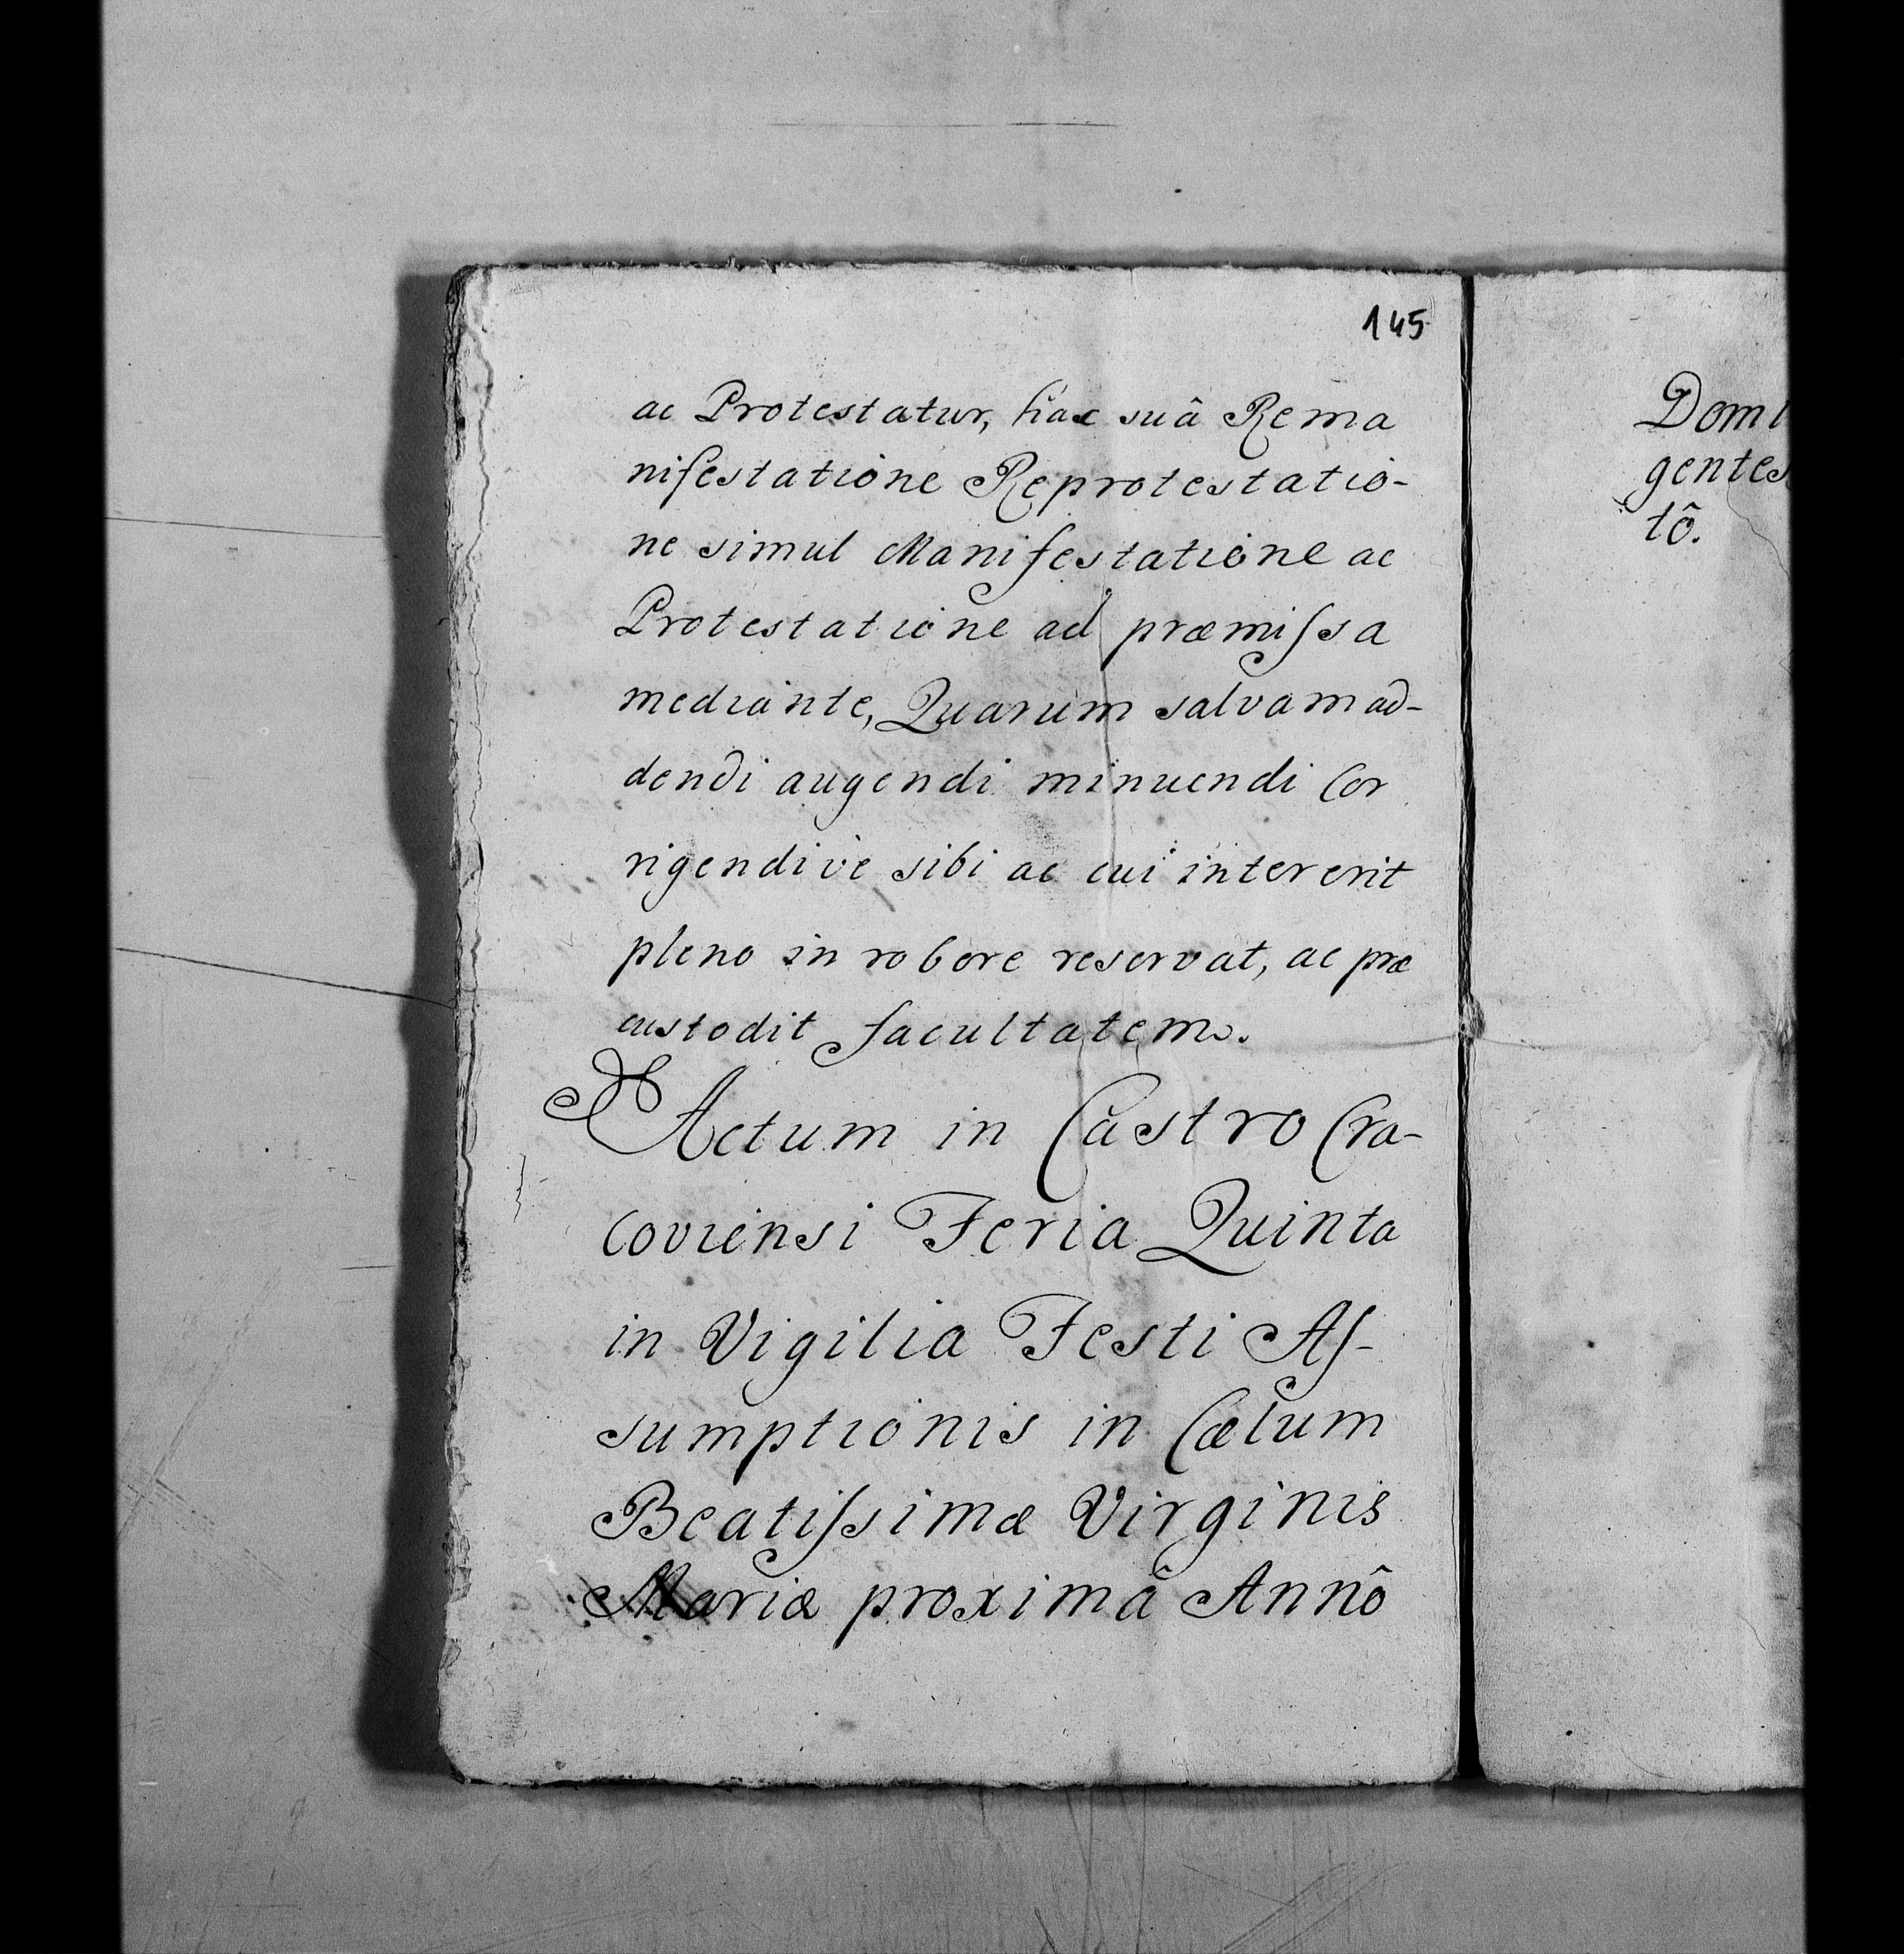 145
ac Protestatur, hac suâ Rema
nifestatione Reprotestatio-
ne simul Manifestatione ac
Protestatione ad præmiſsa
mediante, Quarum salvam ad-
dendi augendi minuendi Cor
rigendive sibi ac cui intererit
pleno in robore reservat, ac præ
custodit facultatem.
Actum in Castro Cra-
coviensi Feria Quinta
in Vigilia Festi Aſ-
sumptionis in Cælum
Beatiſsimæ Virginis
Mariæ proximâ Annô
Domi
gentes
tô.